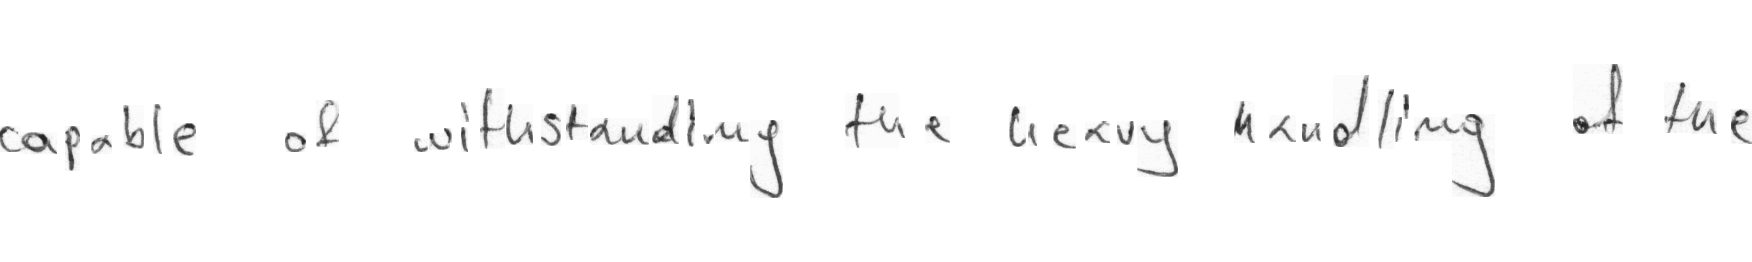 capable of withstandling the heavy handling of the